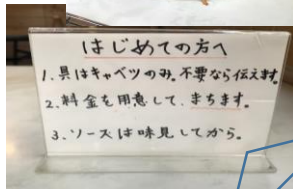 はじめての方へ
1.具はキャベツのみ。不要なら伝えます。
2.料金を用意して、まちます。
3.ソースは味見してから。